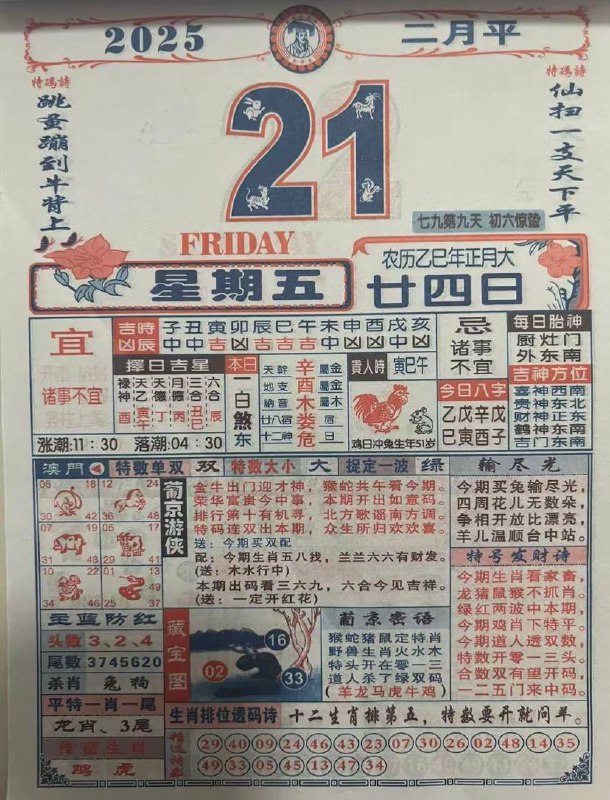 2025
二月平
特碼詩
跳蚤蹦到牛背上
特碼詩
仙扫一支天下平
21
七九第九天 初六惊蛰
FRIDAY
星期五
农历乙巳年正月大
廿四日
宜
诸事不宜
吉時 子丑寅卯辰巳午未申酉戌亥
凶辰 中中吉凶吉吉吉中凶凶中中
擇日吉星
禄神 酉
天乙 寅午
天德 丁
月德 丙
三合 丑巳
六合 辰
本日
一白
煞东
天幹 辛 屬金
地支 酉 屬金
納音 木 屬木
廿八宿 娄 宿
十二神 危 日
貴人時 寅巳午
鸡日冲兔生年51岁
忌
诸事不宜
今日八字
乙戊辛戊
巳寅酉子
每日胎神
厨灶门
外东南
吉神方位
喜神西南
贵神东北
财神正东
鹤神东南
吉门东南
涨潮:11:30 落潮:04:30
澳門 特数单双 双 特数大小 大 捉定一波 绿
06 18 12 24
30 42 36 48
07 19 09 21
31 43 33 45
10 22 01 13
34 46 25 37
49
葡京游侠
金牛出门迎才神,猴蛇共午看今期。
荣华富贵今中事,本期开出如意码。
排行第十有机寻,北方歌谣南方调。
特码连双出本期,众生所归欢欢喜。
送:今期买双配
配:今期生肖五八找,兰兰六六有财发。
(送:木水行中)
本期出码看三六九,六合今见吉祥。
(送:一定开红花)
輸尽光
今期买兔输尽光,
四周花儿无数朵,
争相开放比漂亮,
羊儿温顺台中站。
特号发财诗
今期生肖看家畜,
龙猪鼠猴不抓肖。
绿红两波中本期,
今期鸡肖下特平。
今期道人透双数,
特数开零一三头。
合数双有望开码,
一二五门来中码。
主蓝防红
头数 3、2、4
尾数 3745620
杀肖 兔狗
平特一肖一尾
龙肖、3尾
传密生肖
鸡 虎
藏宝图
16
02
33
葡京密语
猴蛇猪鼠定特肖
野兽生肖火水木
特头开在零一三
道人杀了绿双码
(羊龙马虎牛鸡)
生肖排位透码诗 十二生肖排第五,特数要开就问羊。
29 40 09 24 46 43 23 07 30 26 02 48 14 35
49 33 05 45 13 47 34